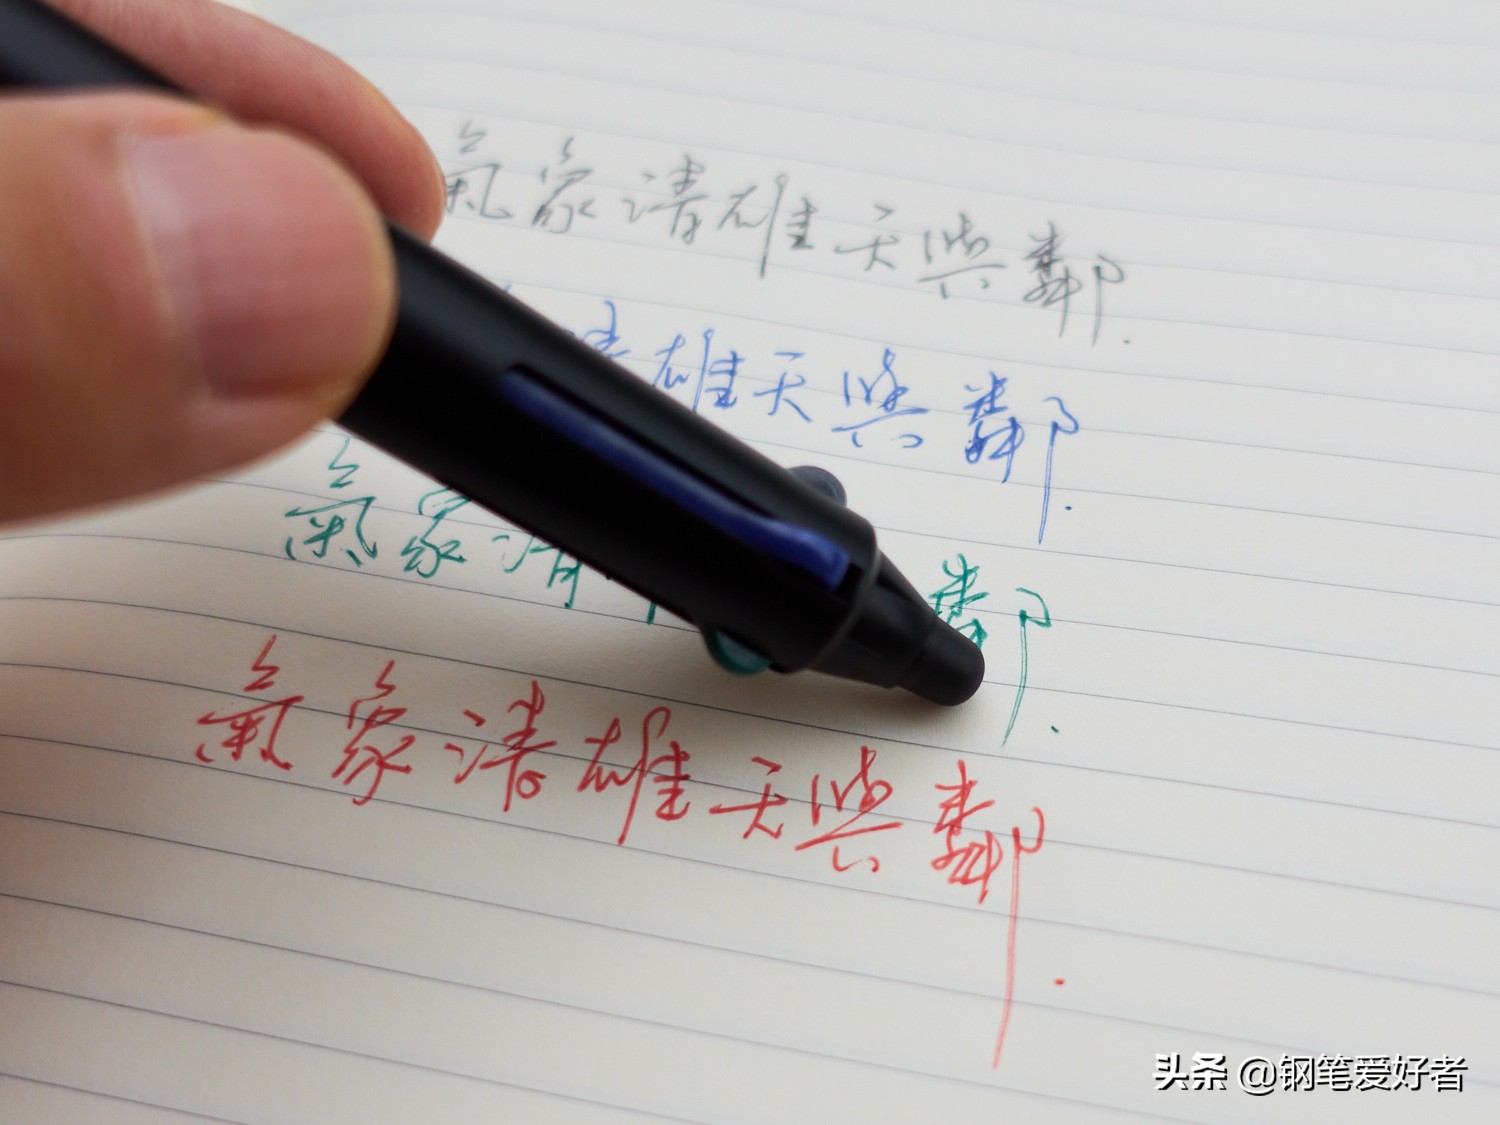 氣象清雄天與鄰.
清雄天與鄰.
氣象清 鄰.
氣象清雄天與鄰.
头条 @钢笔爱好者